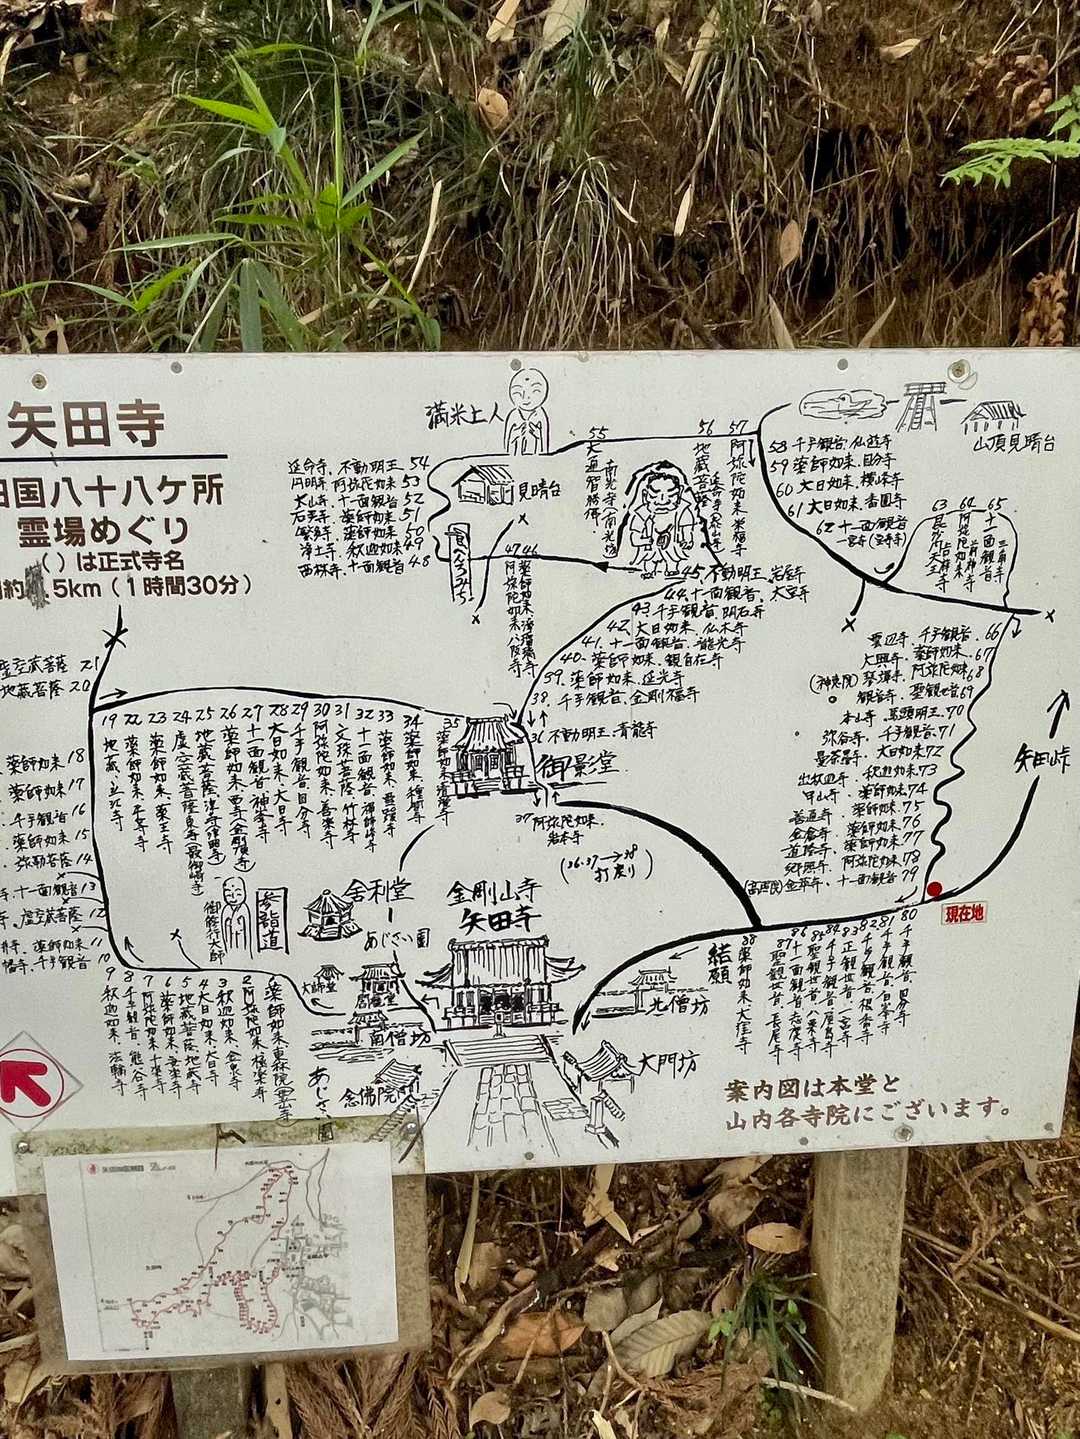 矢田寺
田国八十八ケ所
霊場めぐり
( )は正式寺名
.5km（1時間30分）
満米上人
見晴台
山頂見晴台
延命寺、不動明王 54
円明寺 阿弥陀如来 53
大山寺、十一面観音 52
石手寺、薬師如来 51
繁多寺、薬師如来 50
浄土寺、釈迦如来 49
西林寺、十一面観音 48
55
大通智勝佛
南光寺(南光坊)
56
地蔵菩薩
57
阿弥陀如来 栄福寺
58 千手観音、仙遊寺
59 薬師如来、国分寺
60 大日如来、横峰寺
61 大日如来、香園寺
62 十一面観音
63
64
阿弥陀如来
前神寺
65
十一面観音
三角寺
47
阿弥陀如来 八坂寺
46
薬師如来、浄瑠璃寺
45、不動明王、岩屋寺
44、十一面観音、大宝寺
43、千手観音、明石寺
42、大日如来、仏木寺
41、十一面観音、龍光寺
40、薬師如来、観自在寺
39、薬師如来、延光寺
38、千手観音、金剛福寺
36 不動明王、青龍寺
御影堂
37 阿弥陀如来、
岩本寺
(36.37→38
打戻り)
雲辺寺、千手観音、66
大興寺、薬師如来、67
(神恵院) 琴弾寺、阿弥陀如来 68
観音寺、聖観世音 69
本山寺、馬頭明王、70
弥谷寺、千手観音、71
曼荼羅寺、大日如来 72
出釈迦寺、釈迦如来 73
甲山寺、薬師如来 74
善通寺、薬師如来、75
金倉寺、薬師如来 76
道隆寺、薬師如来 77
郷照寺、阿弥陀如来 78
(高照院) 金華寺、十一面観音 79
矢田峠
現在地
虚空蔵菩薩 21
地蔵菩薩 20
薬師如来 18
薬師如来 17
千手観音 16
薬師如来 15
弥勒菩薩 14
寺、十一面観音 13
寺、虚空蔵菩薩 12
薬師如来 11
寺、千手観音 10
19
地蔵、立江寺
22
薬師如来、平等寺
23
薬師如来、薬王寺
24
虚空蔵菩薩 東寺(最御崎寺)
25
地蔵菩薩、津寺(津照寺)
26
薬師如来、西寺(金剛頂寺)
27
十一面観音、神峯寺
28
大日如来、大日寺
29
千手観音、国分寺
30
阿弥陀如来、善楽寺
31
文珠菩薩、竹林寺
32
十一面観音、禅師峰寺
33
薬師如来、雪蹊寺
34
薬師如来、種間寺
35
薬師如来、清滝寺
御修行大師
参詣道
舎利堂
あじさい園
金剛山寺
矢田寺
大師堂
閻魔堂
南僧坊
念佛院
北僧坊
大門坊
あじさい園
9
釈迦如来、法輪寺
8
千手観音、熊谷寺
7
阿弥陀如来 十楽寺
6
薬師如来 安楽寺
5
地蔵菩薩 地蔵寺
4
大日如来、大日寺
3
釈迦如来、金泉寺
2
阿弥陀如来、極楽寺
薬師如来 東林院(霊山寺)
結願
88
薬師如来 大窪寺
87
聖観世音、長尾寺
86
十一面観音、志度寺
85
聖観世音、八栗寺
84
千手観音、屋島寺
83
正観世音、一宮寺
82
千手観音、根香寺
81
千手観音、白峯寺
80
千手観音、国分寺
案内図は本堂と
山内各寺院にございます。